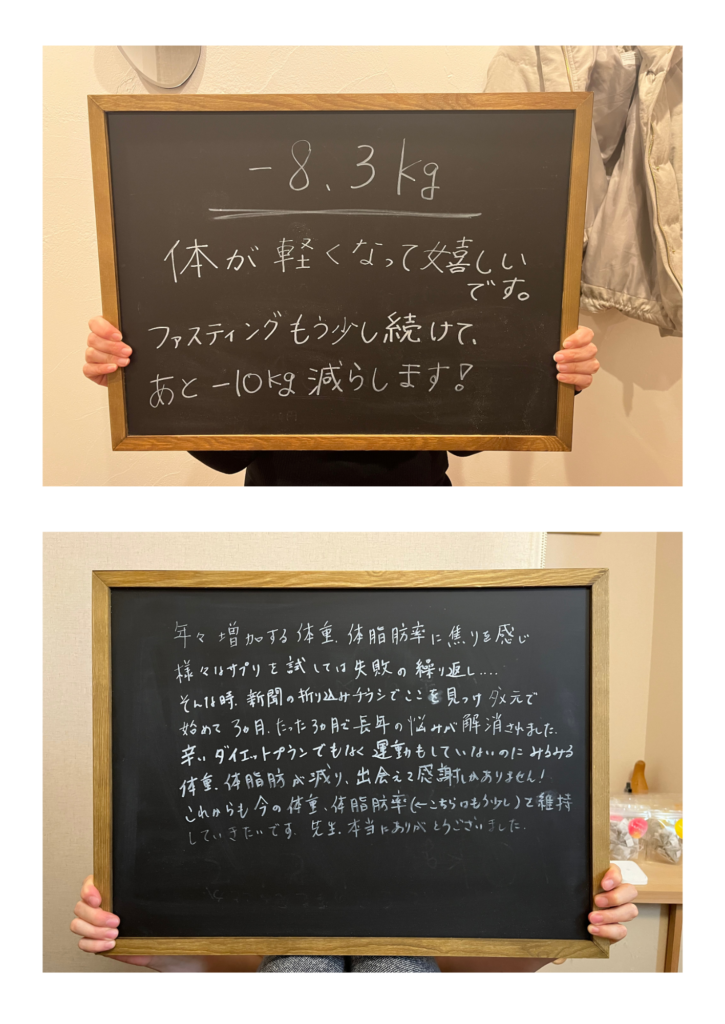 -8.3kg
体が軽くなって嬉しい
です。
ファスティングもう少し続けて、
あと-10kg減らします!
年々増加する体重、体脂肪率に焦りを感じ
様々なサプリを試しては失敗の繰り返し....
そんな時、新聞の折り込みチラシでここを見つけダメ元で
始めて3ヶ月、たった3ヶ月で長年の悩みが解消されました。
辛いダイエットプランでもなく運動もしていないのにみるみる
体重、体脂肪が減り、出会えて感謝しかありません!
これからも今の体重、体脂肪率(←こちらはもう少し)を維持
していきたいです。先生、本当にありがとうございました。